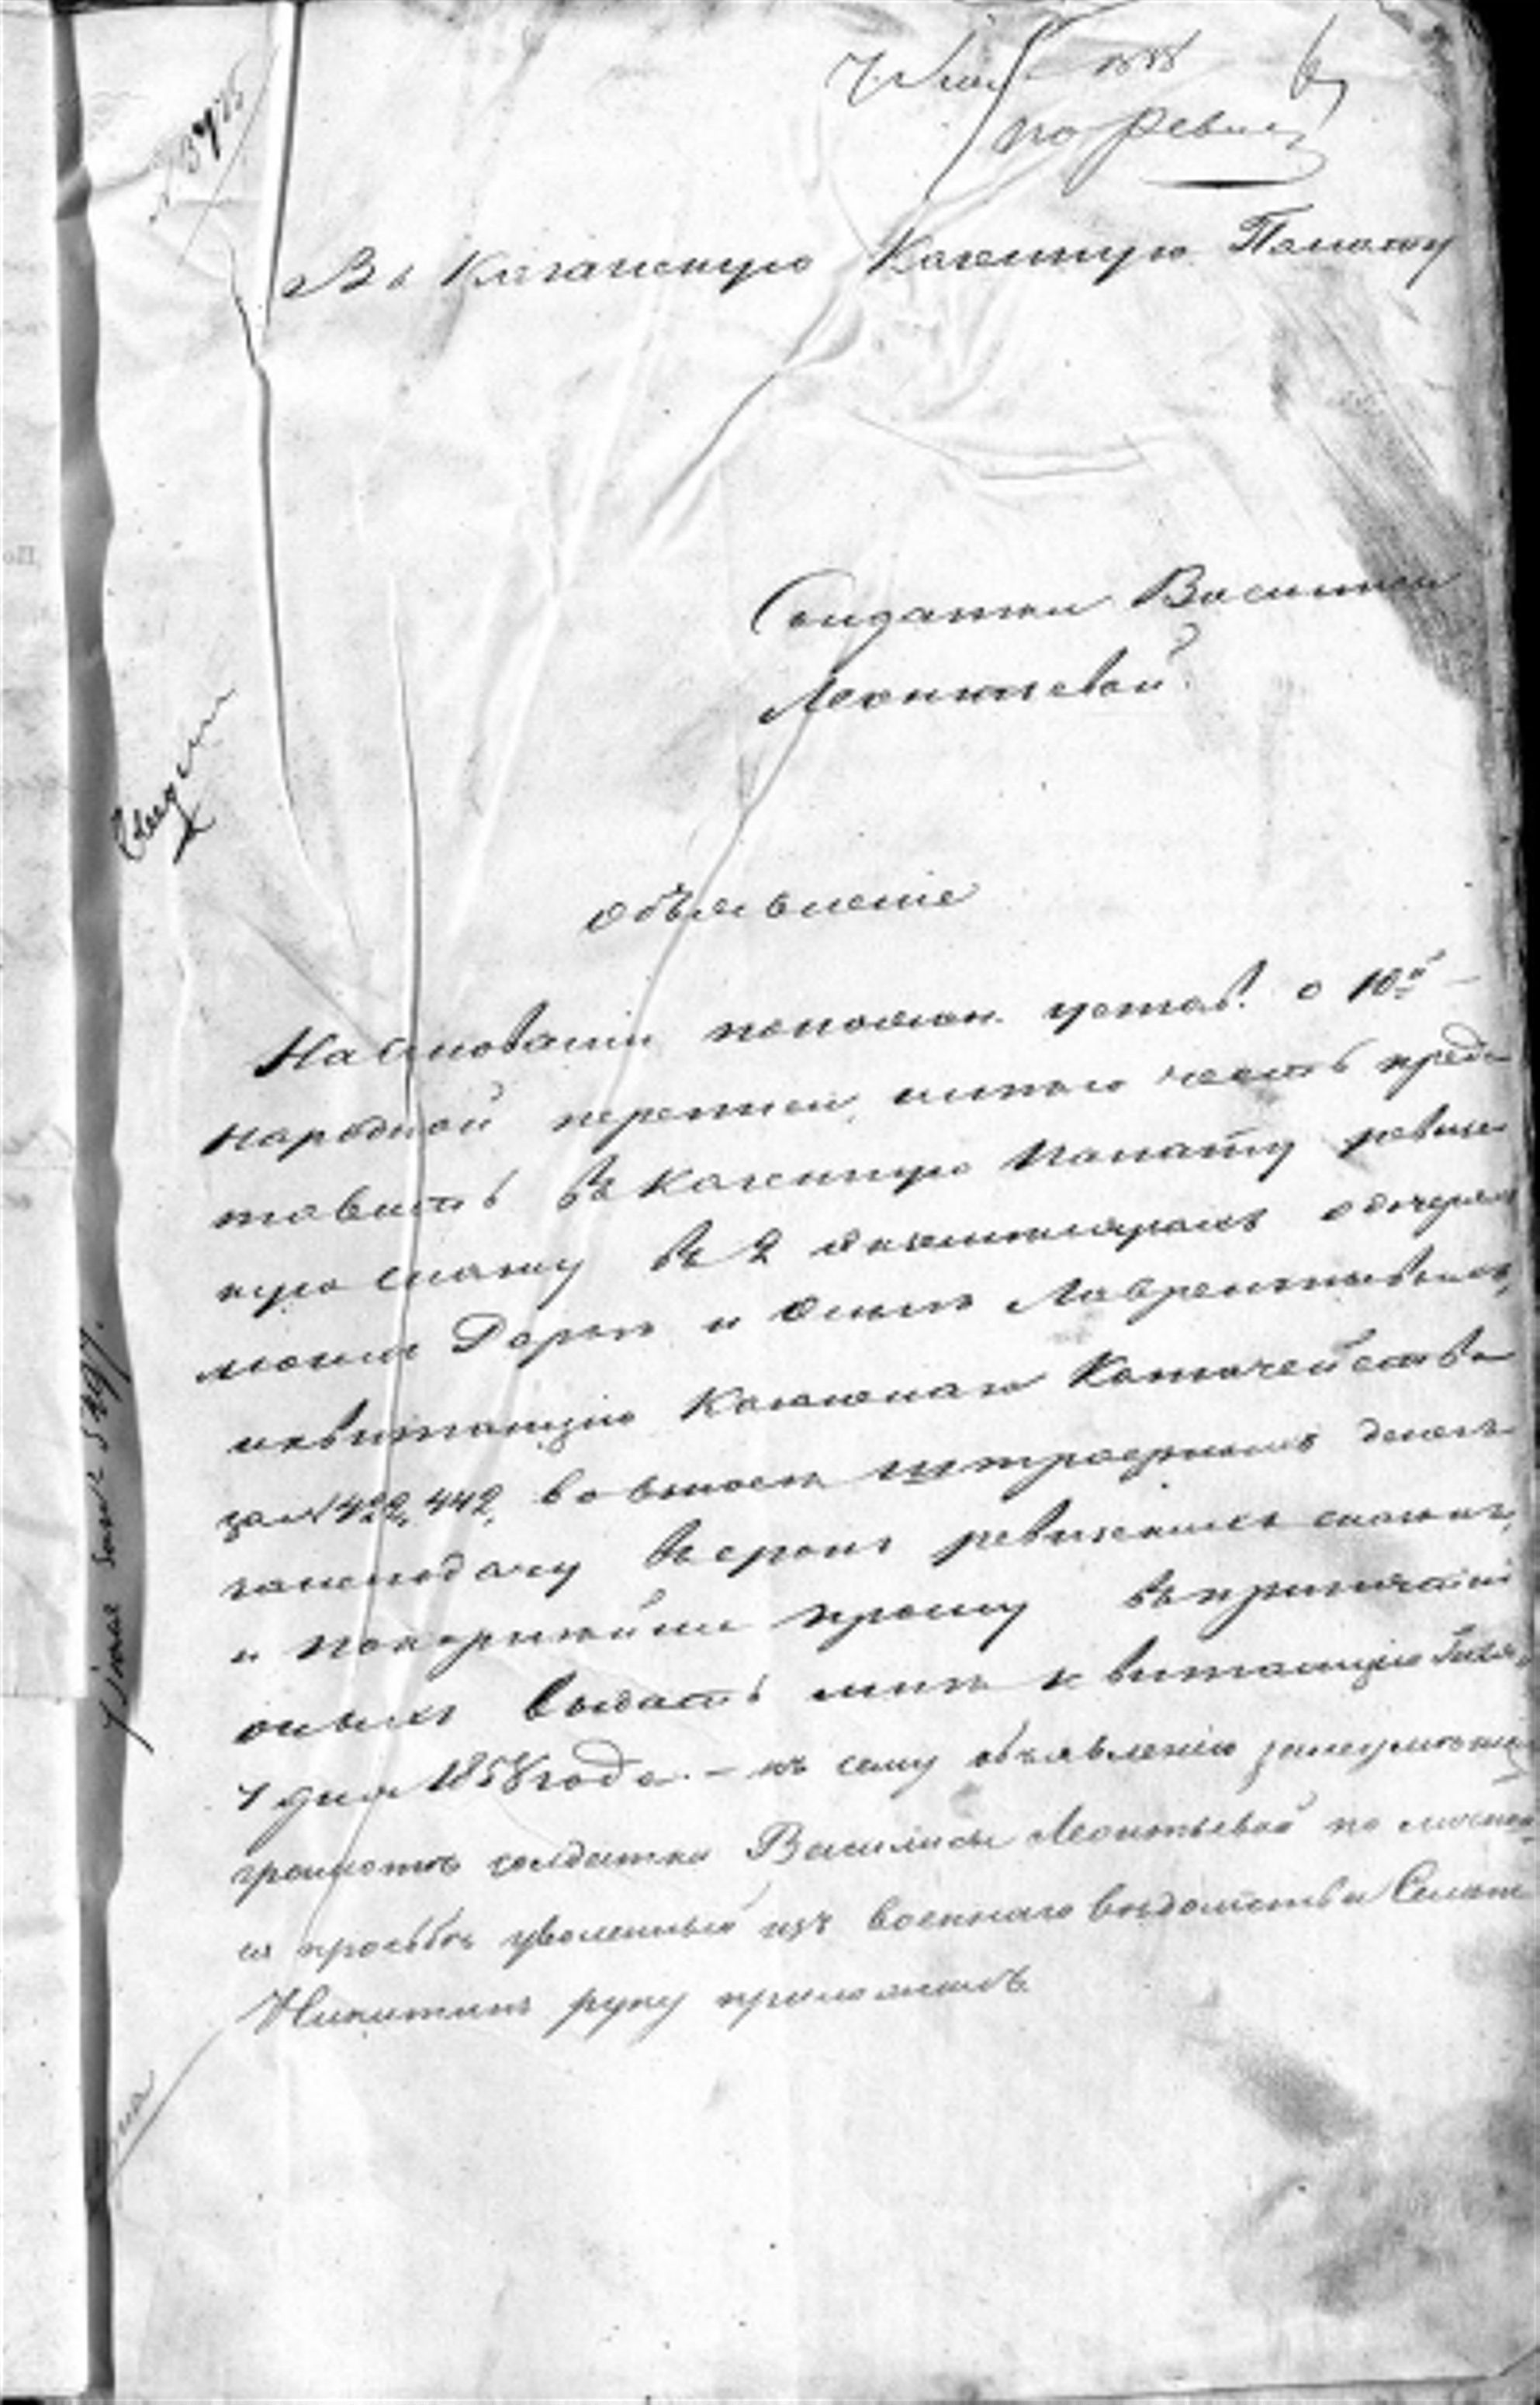 1858
по Ревиз
В Казанскую Казенную Палату
Солдатки Василисы
Леонтьевой
Объявленіе
На основаніи положен. устав. о 10й
народной переписи, имѣю честь предс
тавить въ Казенную Палату ревизс
кую сказку въ 2 экземплярахъ о дочеряхъ
моихъ Дарьѣ и Лаврентьевыхъ,
и квитанцію Казначейства
за № 442, во взносѣ штрафныхъ денегъ
за неподачу въ срокъ ревизскихъ сказокъ,
и покорнѣйше прошу въ принятіи
оныхъ выдать мнѣ квитанцію
7 дня 1858 года. – къ сему объявленію за неумѣніем
грамотѣ солдатки Василисы Леонтьевой по личной
ея просьбѣ уволенный изъ военнаго вѣдомства
Никитинъ руку приложилъ